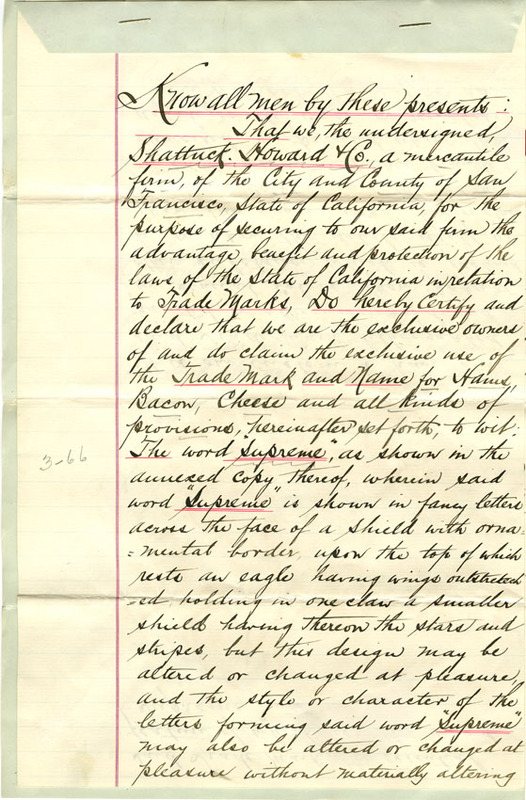 Know all men by these presents:
That we, the undersigned,
Shattuck, Howard & Co., a mercantile
firm, of the City and County of San
Francisco, State of California, for the
purpose of securing to our said firm the
advantage, benefit and protection of the
laws of the State of California in relation
to Trade Marks, Do hereby Certify and
declare that we are the exclusive owners
of and do claim the exclusive use of
the Trade Mark and Name for Hams,
Bacon, Cheese and all kinds of
provisions, hereinafter set forth, to wit:
The word "Supreme", as shown in the
annexed copy thereof, wherein said
word "Supreme" is shown in fancy letters
across the face of a shield with orna=
=mental border, upon the top of which
rests an eagle having wings outstretch
=ed, holding in one claw a smaller
shield having thereon the stars and
stripes, but this design may be
altered or changed at pleasure,
and the style or character of the
letters forming said word "Supreme"
may also be altered or changed at
pleasure without materially altering
3-66